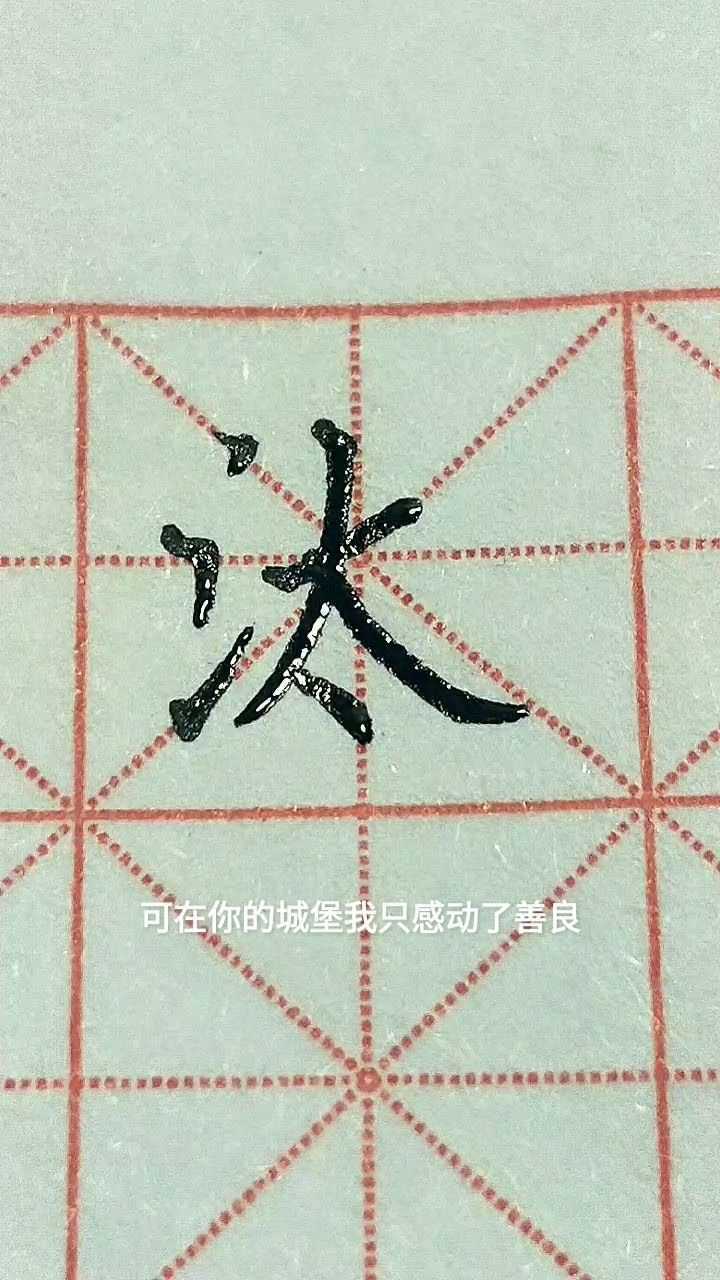 汰
可在你的城堡我只感动了善良